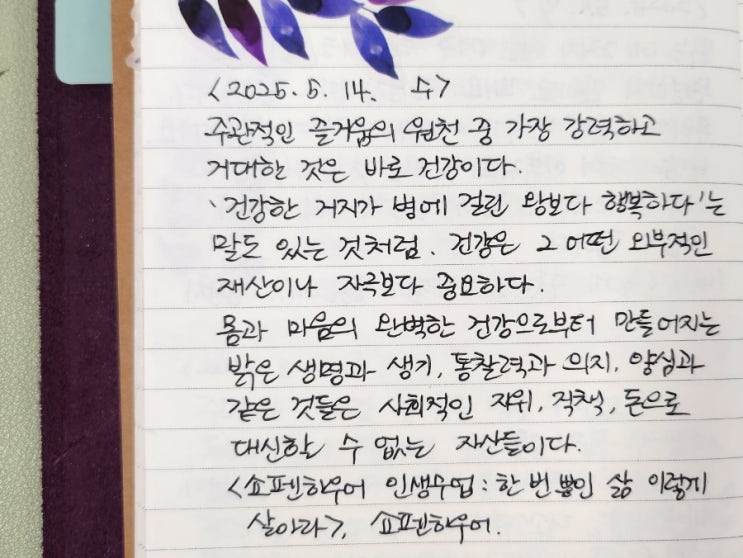 <2025. 5. 14. 수>
주관적인 즐거움의 원천 중 가장 강력하고
거대한 것은 바로 건강이다.
'건강한 거지가 병에 걸린 왕보다 행복하다'는
말도 있는 것처럼. 건강은 그 어떤 외부적인
재산이나 자극보다 중요하다.
몸과 마음의 완벽한 건강으로부터 만들어지는
밝은 생명과 생기, 통찰력과 의지, 양심과
같은 것들은 사회적인 지위, 직책, 돈으로
대신할 수 없는 자산들이다.
<쇼펜하우어 인생수업: 한 번뿐인 삶 이렇게
살아라>, 쇼펜하우어.